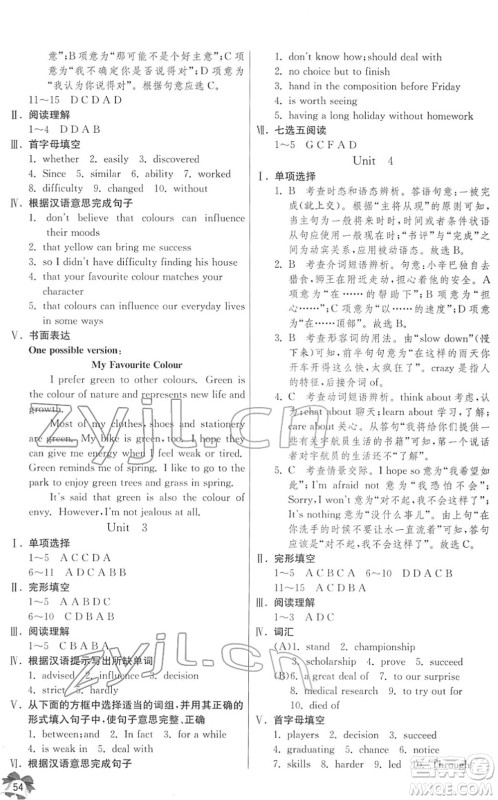 意”；B项意为“那可能不是个好主意”；C项
意为“我不确定你是否说得对”；D项意为
“我认为你说得对”。根据句意应选C。
11～15 DCDAD
Ⅱ. 阅读理解
1～4 DDAB
Ⅲ. 首字母填空
1. whether 2. easily 3. discovered
4. Since 5. similar 6. ability 7. worked
8. difficulty 9. changed 10. without
Ⅳ. 根据汉语意思完成句子
1. don't believe that colours can influence
their moods
2. that yellow can bring me success
3. so I didn't have difficulty finding his house
4. that your favourite colour matches your
character
5. that colours can influence our everyday lives
in some ways
Ⅴ. 书面表达
One possible version:
My Favourite Colour
I prefer green to other colours. Green is
the colour of nature and represents new life and
growth.
Most of my clothes, shoes and stationery
are green. My bike is green, too. Green things
can give me energy when I feel weak or tired.
Green reminds me of spring. I always go to the
park to enjoy green trees and grass in spring.
It's said that green is also the colour of
envy. However, I'm not jealous at all.
Unit 3
Ⅰ. 单项选择
1～5 ACCDA
6～11 ADCABB
Ⅱ. 完形填空
1～5 AABDC
6～10 CDBDC
Ⅲ. 阅读理解
1～5 CBABA
Ⅳ. 根据汉语提示写出所缺单词
1. advised 2. influence 3. decision
4. strict 5. hardly
Ⅴ. 从以下的方框中选择适当的词组,并用其正确的
形式填入句子中,使句子意思完整、正确
1. between; and 2. In fact 3. take part in
4. is weak in 5. deal with
Ⅵ. 根据汉语意思完成句子
54
1. don't know how; should deal with
2. no choice but to finish
3. hand in the composition before Friday
4. is very strict with himself
5. having a long holiday without homework
Ⅶ. 七选五阅读
1～5 GCFAD
Unit 4
Ⅰ. 单项选择
1. B 考查时态和语态辨析。答语句意：一被完
成(就上交)。根据“主将从现”的原则可知，
当主句为一般将来时时，时间或者条件状语
从句以现在时表将来；“书评”与“完成”之
间构成被动语态。故选B。
2. B 考查介词短语辨析。句意：小辛巴独自去
大象墓地附近走动，担心着他的安危。A项
意为“在……的帮助下”；B项意为“担心
……”；C项意为“以……的速度”；D项意为
“在……顶部”。故选B。
3. B 考查形容词的用法。由“slow down”(慢
下来)可知，前半句句意为“在下雨的冬天
开车开得这么快你一定是疯了”。crazy是指
“疯了”。故选B。
4. A 考查动词短语辨析。think about考虑，认
为；chat about聊天；learn about学习，了解；
care about关心。从句意“从图书馆里借了
一些有关宇航员生活的书籍”可知“他想了
解更多关于宇航员的生活”。故选C。
5. C 考查情景交际。I hope so意为“我希望如
此”；I'm afraid not意为“我恐怕不会”；
Sorry, I won't意为“对不起，我不会这样了”；
It's nothing意为“没什么事儿”。由上句“在
你洗手的时候我总是听到水龙头在滴水”，答
句应该是“对不起，我不会这样了”。故选C。
Ⅱ. 完形填空
1～5 ACBCA 6～10 DDACB
Ⅲ. 阅读理解
1～3 ADC
Ⅳ. 词汇
(A)1. stand 2. championship
3. scholarship 4. prove 5. succeed
(B)6. of our success 7. lose heart
8. medical research 9. to try out for
10. died of
Ⅴ. 首字母填空
1. players 2. decision 3. succeed
4. graduating 5. chance 6. writing
7. skills 8. harder 9. led 10. Through
zyjl.cn
zyjl.cn